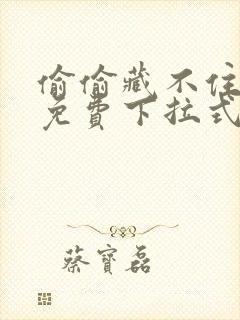 偷偷藏不住
免費下拉式
蔡寶磊